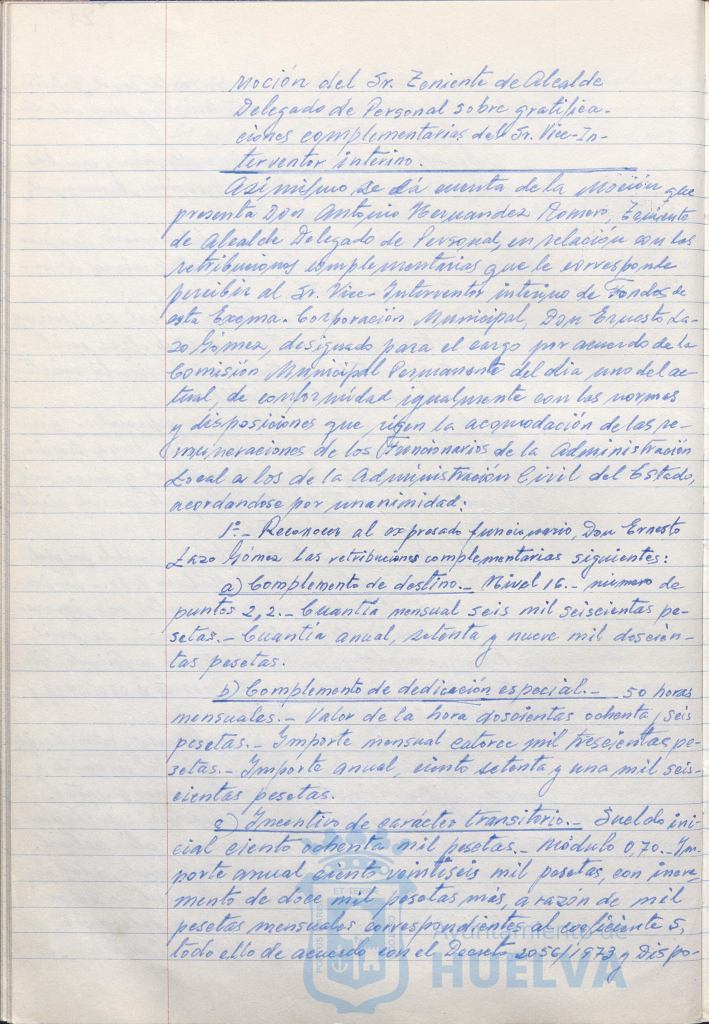 Moción del Sr. Teniente de Alcalde
Delegado de Personal sobre gratifica-
ciones complementarias del Sr. Vice-In-
terventor interino.
Asimismo se dá cuenta de la Moción que
presenta Don Antonio Hernandez Romero, Teniente
de Alcalde Delegado de Personal, en relación con las
retribuciones complementarias que le corresponde
percibir al Sr. Vice-Interventor interino de Fondos de
esta Excma. Corporación Municipal, Don Ernesto La-
zo Gómez, designado para el cargo por acuerdo de la
Comisión Municipal Permanente del dia uno del ac-
tual, de conformidad igualmente con las normas
y disposiciones que rigen la acomodación de las re-
muneraciones de los Funcionarios de la Administración
Local a los de la Administración Civil del Estado,
acordandose por unanimidad:
1º.- Reconocer al expresado funcionario, Don Ernesto
Lazo Gómez las retribuciones complementarias siguientes:
a) Complemento de destino.- Nivel 16.- número de
puntos 2,2.- Cuantía mensual seis mil seiscientas pe-
setas.- Cuantía anual, setenta y nueve mil doscien-
tas pesetas.
b) Complemento de dedicación especial.- 50 horas
mensuales.- Valor de la hora doscientas ochenta y seis
pesetas.- Importe mensual catorce mil trescientas pe-
setas.- Importe anual, ciento setenta y una mil seis-
cientas pesetas.
c) Incentivo de carácter transitorio.- Sueldo ini-
cial ciento ochenta mil pesetas.- Módulo 0,70.- Im-
porte anual ciento veintiseis mil pesetas, con incre-
mento de doce mil pesetas más, a razón de mil
pesetas mensuales correspondientes al coeficiente 5,
todo ello de acuerdo con el Decreto 2056/1973 y Dispo-
Ayuntamiento de
HUELVA